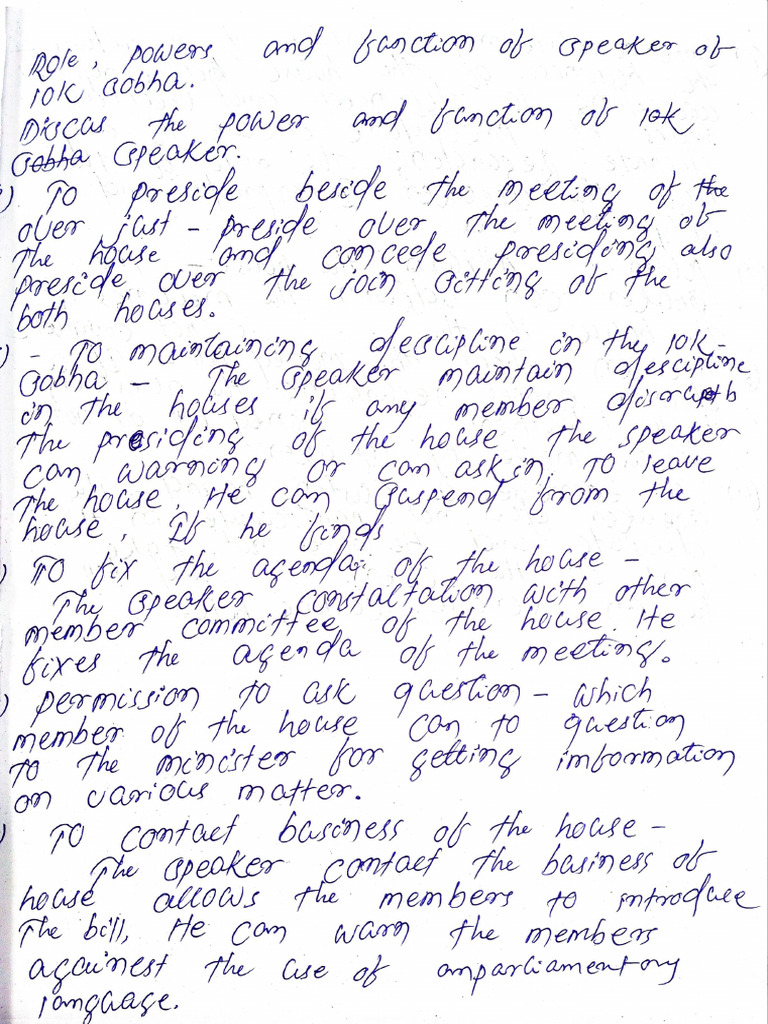 Role, powers and function of speaker of
lok sobha.
Discus the power and function of lok
sobha speaker.
) To preside beside the meeting of the
over just - preside over the meeting of
the house and concede presiding also
preside over the join sitting of the
both houses.
) - To maintaining descipline in the lok-
sobha - The speaker maintain descipline
in the houses if any member
the presiding of the house the speaker
can warning or can ask in to leave
the house. He can suspend from the
house, If he finds
) To fix the agenda of the house -
The speaker constaltation with other
member committee of the house. He
fixes the agenda of the meeting.
) permission to ask question - which
member of the house can to question
to the minister for getting imformation
on various matter.
) To contact business of the house -
The speaker contact the business of
house allows the members to introduce
the bill, He can warn the members
againest the use of unparliamentory
language.